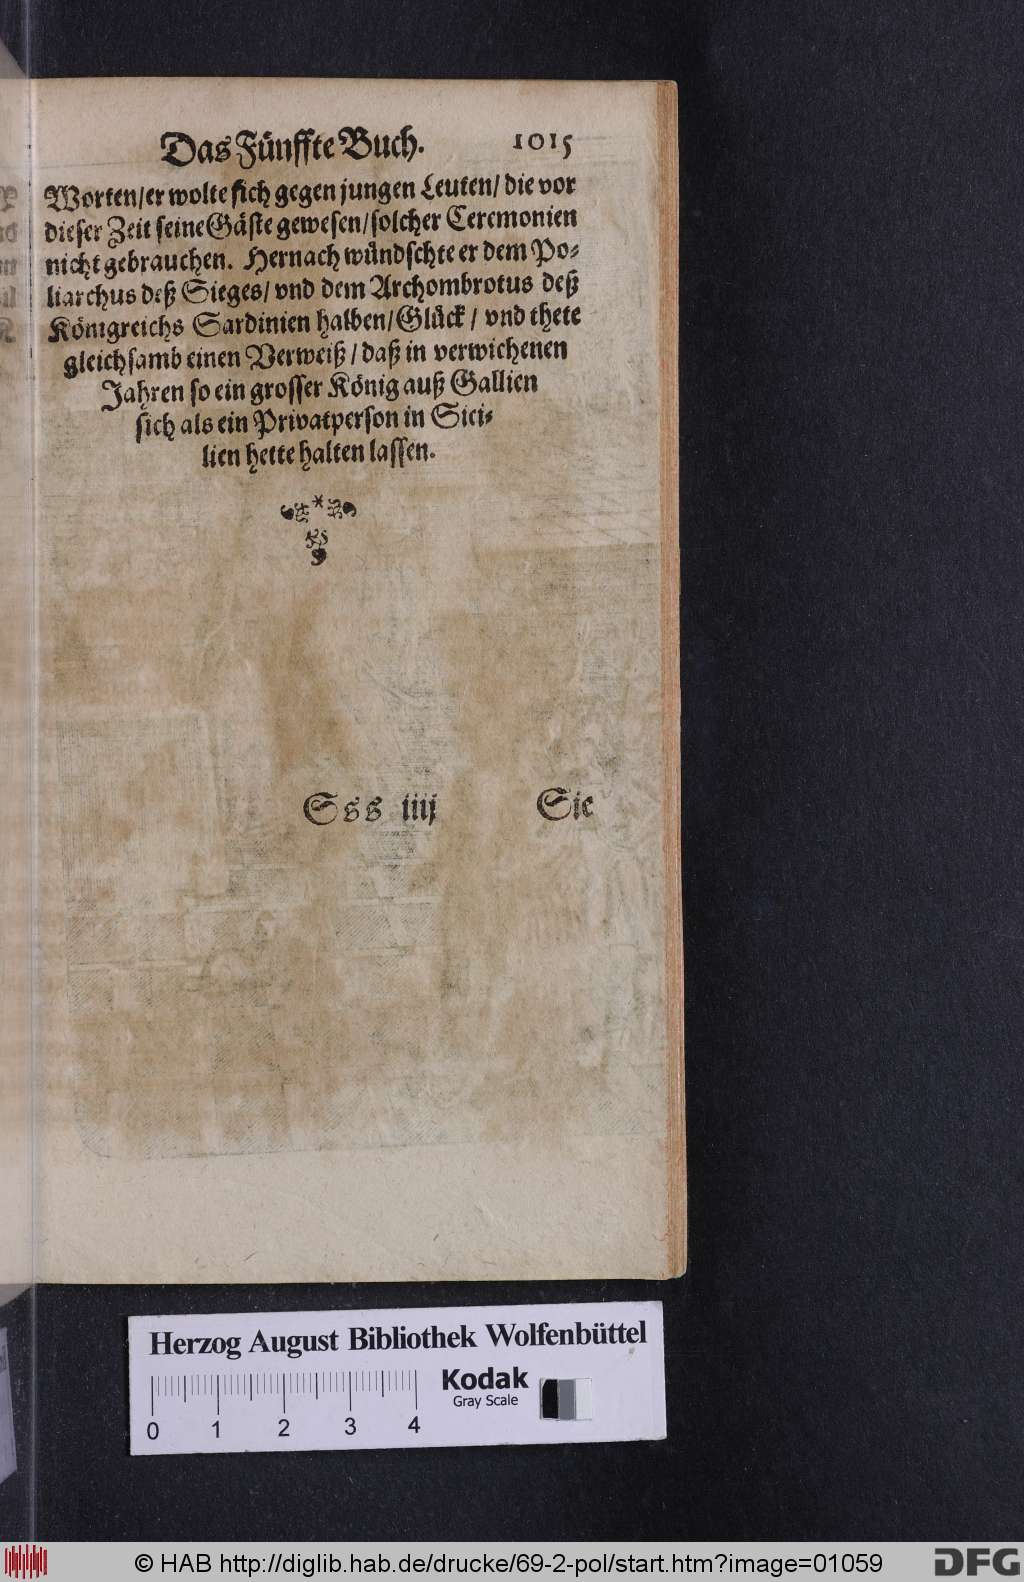 Das Fünffte Buch. 1015
Worten/ er wolte sich gegen jungen Leuten/ die vor
dieser Zeit seine Gäste gewesen/ solcher Ceremonien
nicht gebrauchen. Hernach wündschte er dem Po-
liarchus deß Sieges/ vnd dem Archombrotus deß
Königreichs Sardinien halben/ Glück/ vnd thete
gleichsamb einen Verweiß/ daß in verwichenen
Jahren so ein grosser König auß Gallien
sich als ein Privatperson in Sici-
lien hette halten lassen.
Sss iiij Sie
Herzog August Bibliothek Wolfenbüttel
Kodak
Gray Scale
0 1 2 3 4
© HAB http://diglib.hab.de/drucke/69-2-pol/start.htm?image=01059
DFG